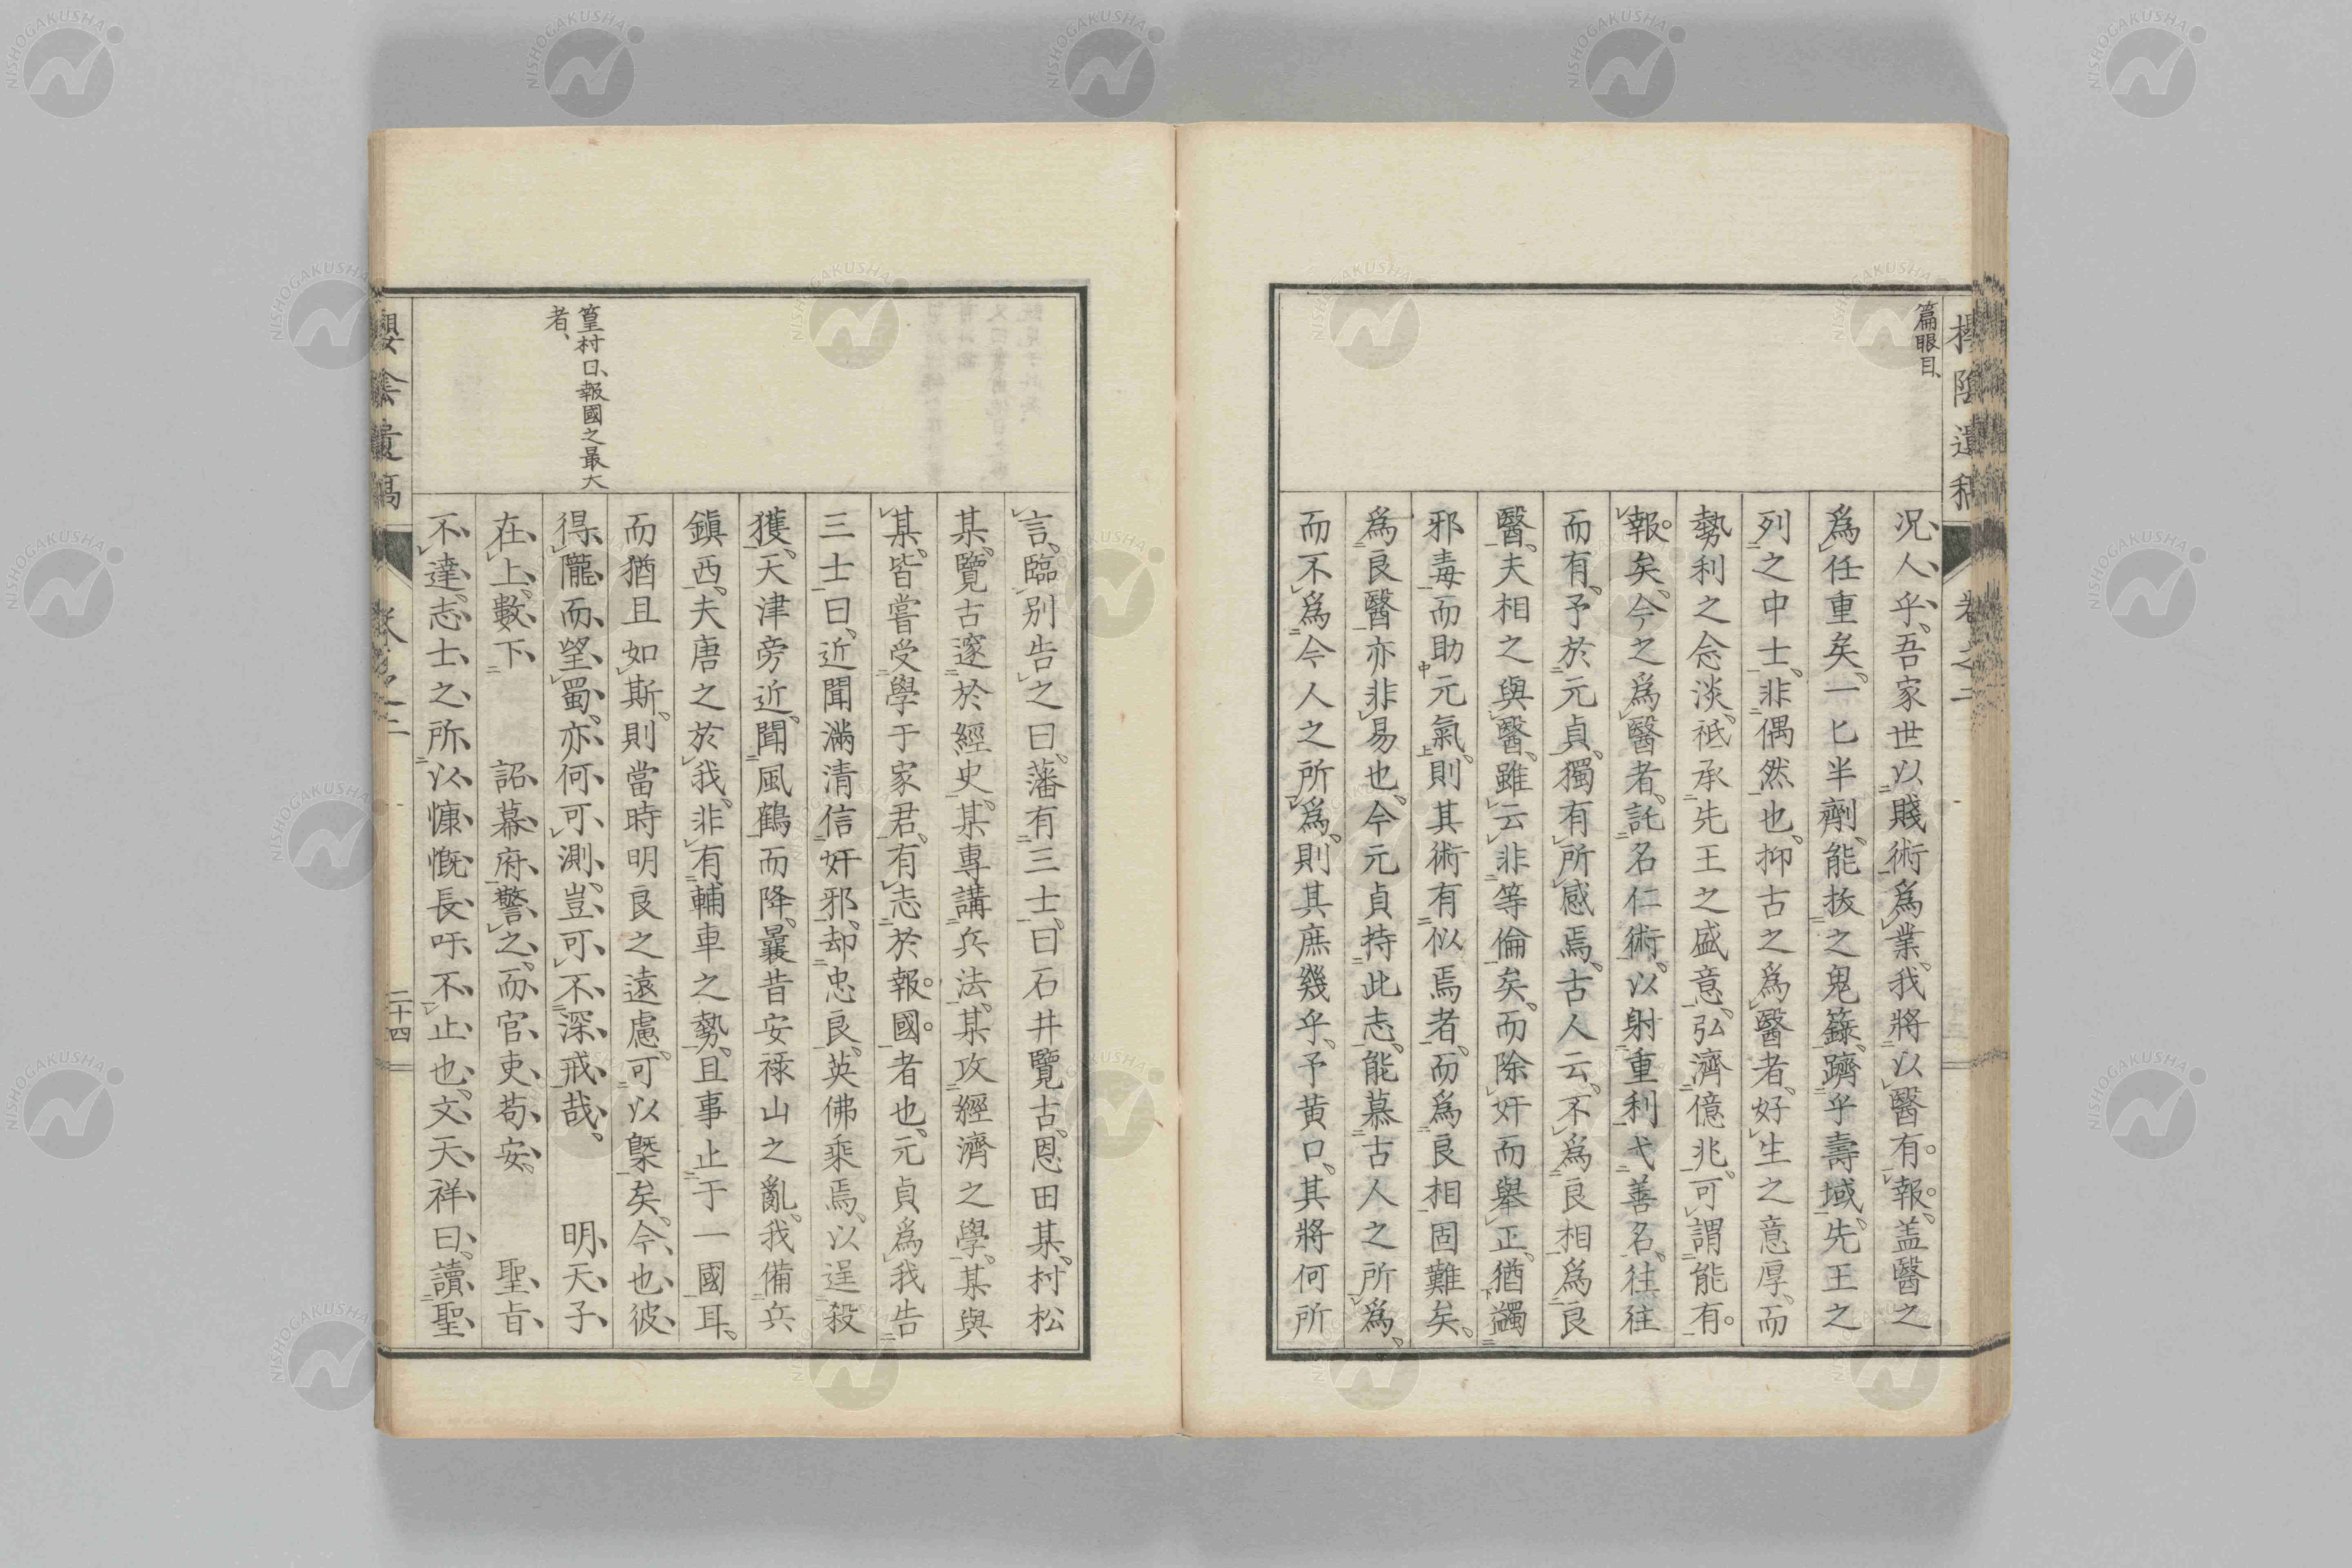 櫻陰遺稿
卷之二
篇眼目、
況人乎、吾家世以賤術爲業、我將以醫有報、盖醫之
爲任重矣、一匕半劑、能拔之鬼籙、躋乎壽域、先王之
列之中士、非偶然也、抑古之爲醫者、好生之意厚、而
勢利之念淡、祗承先王之盛意、弘濟億兆、可謂能有
報矣、今之爲醫者、託名仁術、以射重利弋善名、往往
而有、予於元貞、獨有所感焉、古人云、不爲良相爲良
醫、夫相之與醫、雖云非等倫矣、而除奸而舉正、猶蠲
邪毒而助元氣、則其術有似焉者、而爲良相固難矣、
爲良醫亦非易也、今元貞持此志、能慕古人之所爲、
而不爲今人之所爲、則其庶幾乎、予黃口、其將何所
言、臨別告之曰、藩有三士、曰石井覽古、恩田某、村松
某、覽古邃於經史、某專講兵法、某攻經濟之學、某與
某、皆嘗受學于家君、有志於報國者也、元貞爲我告
三士曰、近聞滿清信奸邪、却忠良、英佛乘焉、以逞殺
獲、天津旁近、聞風鶴而降、曩昔安禄山之亂、我備兵
鎭西、夫唐之於我、非有輔車之勢、且事止于一國耳、
而猶且如斯、則當時明良之遠慮、可以槩矣、今也彼
得隴而望蜀、亦何可測、豈可不深戒哉、 明天子
在上、數下 詔幕府警之、而官吏苟安、 聖旨
不達、志士之所以慷慨長吁不止也、文天祥曰、讀聖
篁村曰、報國之最大
者、
櫻陰遺稿
卷之二
二十四